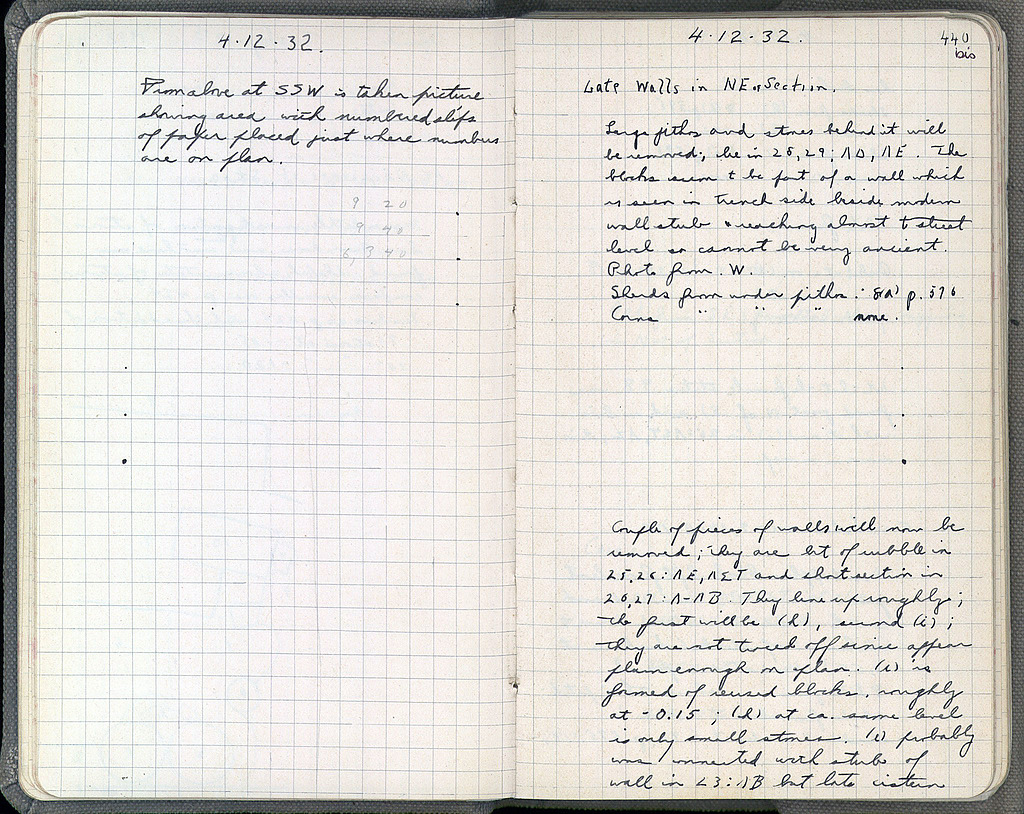 4·12·32.
From above at SSW is taken picture
showing area with numbered slips
of paper placed just where numbers
are on plan.
9 20
9 40
6,340
4·12·32.
440
bis
Late Walls in NE Section.
Large pithos and stones behind it will
be removed; lie in 28,29; ΛD, ΛE. The
blocks seem t be part of a wall which
is seen in trench side beside modern
wall stub & reaching almost to street
level so cannot be very ancient.
Photo from W.
Sherds from under pithos: 8(a) p. 576
Coins " " " none.
Couple of pieces of walls will now be
removed; they are bit of rubble in
25,26: ΛE, ΛΣT and short section in
26,27: Λ-ΛB. They line up roughly;
the first will be (h), second (i);
they are not traced off since appear
plain enough on plan. (i) is
formed of reused blocks, roughly
at -0.15; (h) at ca. same level
is only small stones. (i) probably
was connected with stub of
wall in 23:ΛB but late cistern